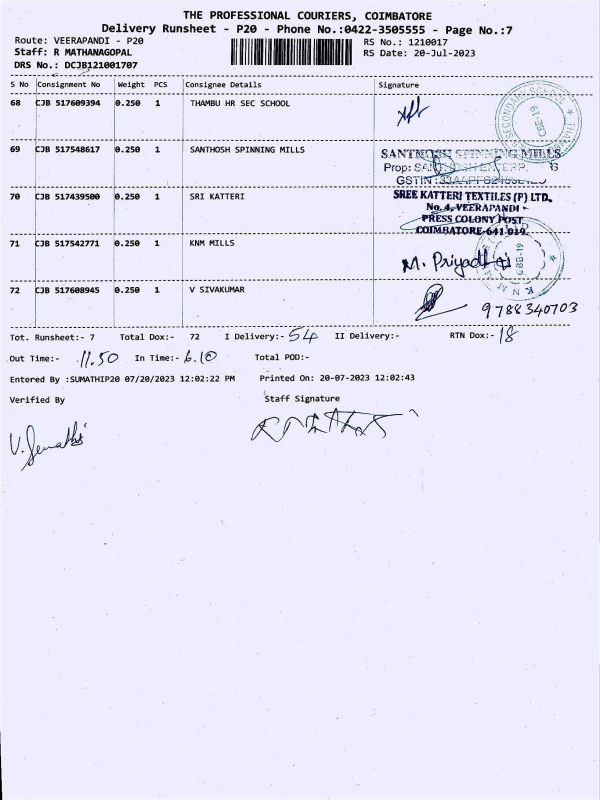 THE PROFESSIONAL COURIERS, COIMBATORE
Delivery Runsheet - P20 - Phone No.:0422-3505555 - Page No.:7
Route: VEERAPANDI - P20 RS No.: 1210017
Staff: R MATHANAGOPAL RS Date: 20-Jul-2023
DRS No.: DCJB121001707
S No Consignment No Weight PCS Consignee Details Signature
68 CJB 517609394 0.250 1 THAMBU HR SEC SCHOOL
69 CJB 517548617 0.250 1 SANTHOSH SPINNING MILLS
SANTHOSH SPINNING MILLS
Prop:
GSTIN
70 CJB 517439500 0.250 1 SRI KATTERI
SREE KATTERI TEXTILES (P) LTD.
No. 4, VEERAPANDI -
PRESS COLONY POST
COIMBATORE-641 019.
71 CJB 517542771 0.250 1 KNM MILLS
M. Priyadh
72 CJB 517608945 0.250 1 V SIVAKUMAR
9788340703
Tot. Runsheet:- 7 Total Dox:- 72 I Delivery:- 54 II Delivery:- RTN Dox:- 18
Out Time:- 11.50 In Time:- 6.10 Total POD:-
Entered By :SUMATHIP20 07/20/2023 12:02:22 PM Printed On: 20-07-2023 12:02:43
Verified By Staff Signature
V. Sumathi